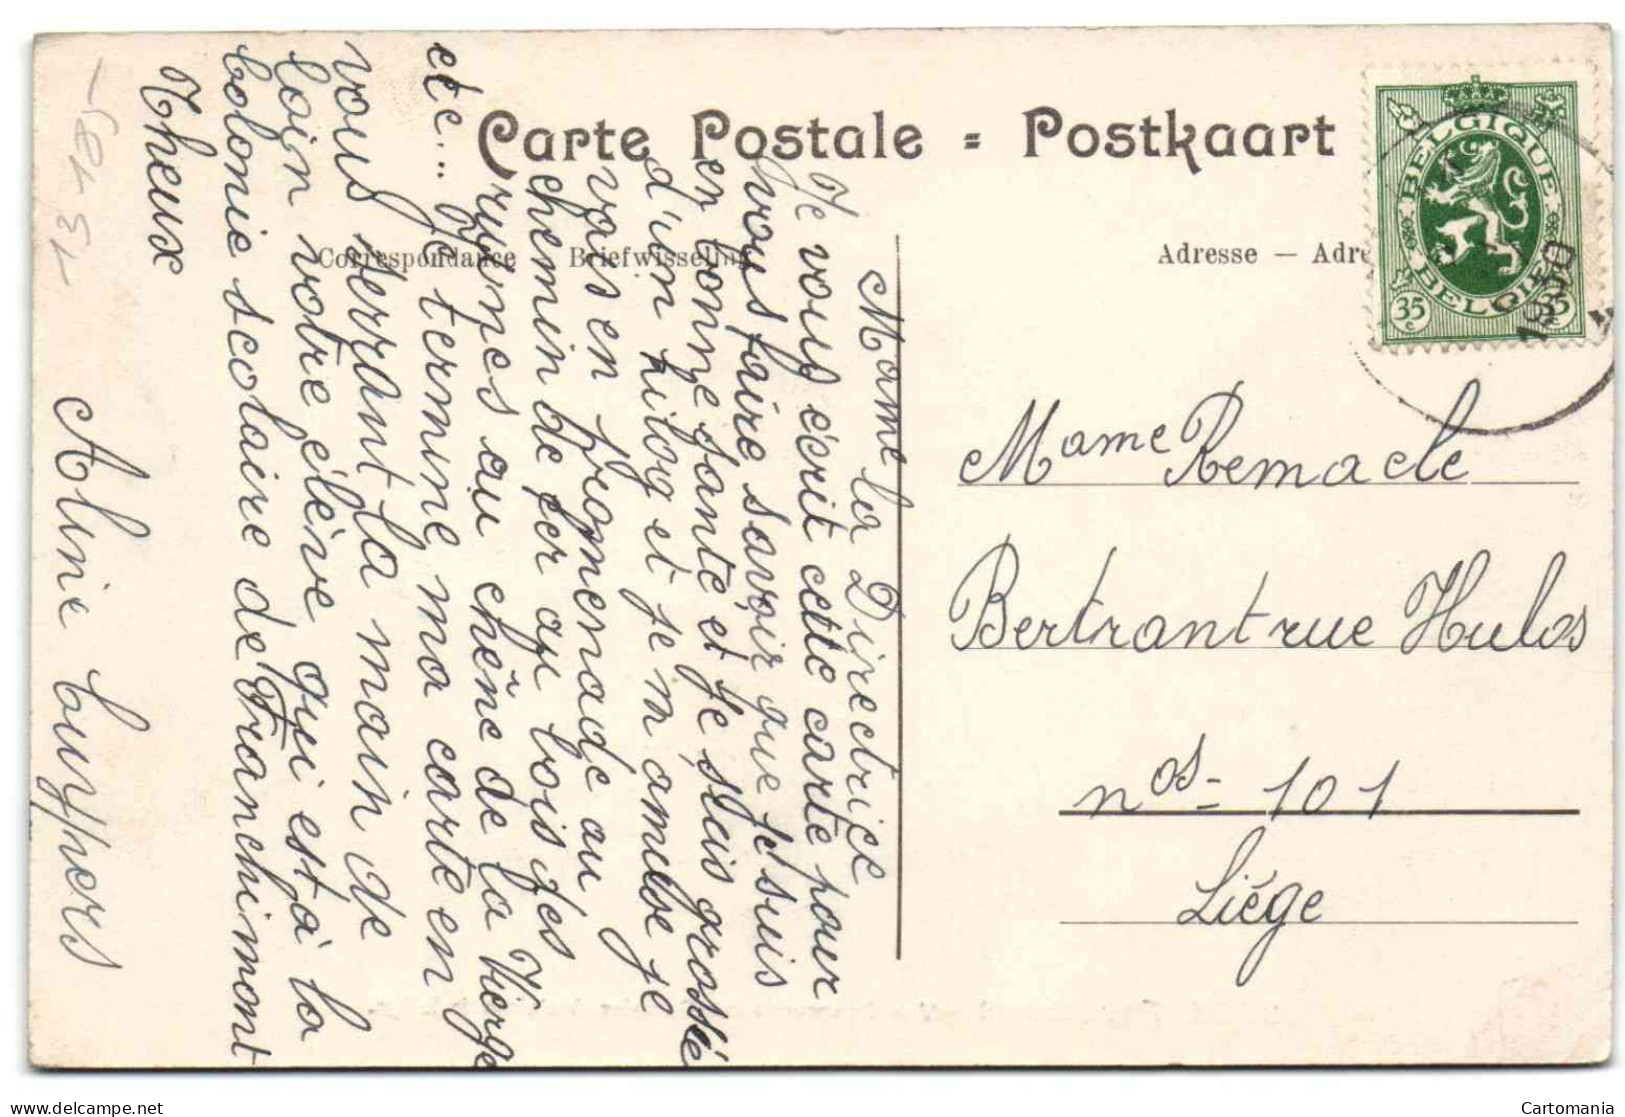 Carte Postale = Postkaart
Correspondance Briefwisseling
Adresse — Adre
BELGIQUE
BELGIE
35 c
35 c
1930
Mame la Directrice
Je vous écrit cette carte pour
vous faire savoir que je suis
en bonne santé et je suis grossé
d'un kilog et je m'amuse je
vais en promenade au
chemin de fer au bois des
ruines au chêne de la Vierge
etc... Je termine ma carte en
vous serrant la main de
loin votre élève qui est à la
colonie scolaire de Franchimont
Theux
Aline Cuypers
-13-185-
Mame Remacle
Bertrant rue Hulos
nos= 101
Liége
Cartomania